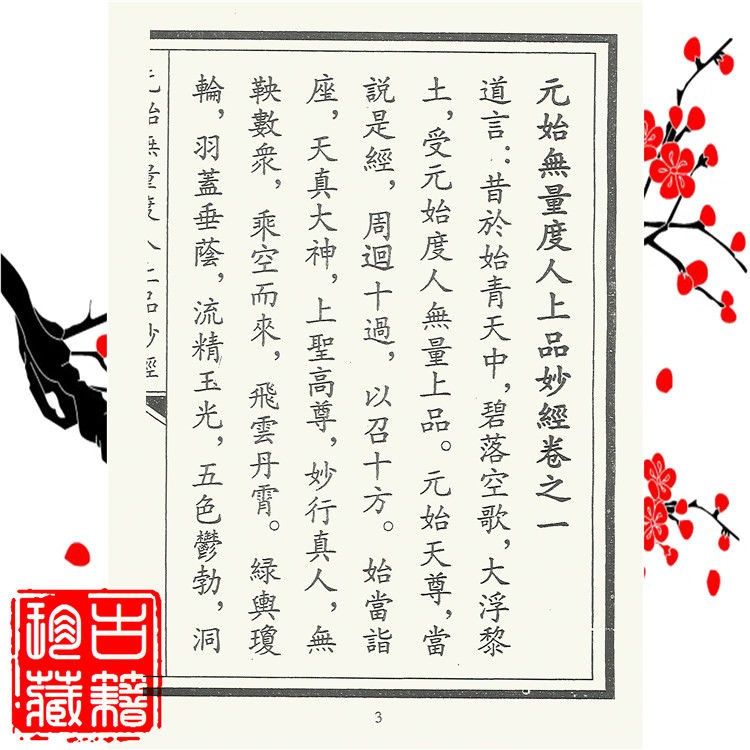 元始無量度人上品妙經卷之一
道言：昔於始青天中，碧落空歌，大浮黎
土，受元始度人無量上品。元始天尊，當
說是經，周迴十過，以召十方。始當詣
座，天真大神，上聖高尊，妙行真人，無
鞅數眾，乘空而來，飛雲丹霄。綠輿瓊
輪，羽蓋垂蔭，流精玉光，五色鬱勃，洞
元始無量度人上品妙經
3
古籍
珍藏